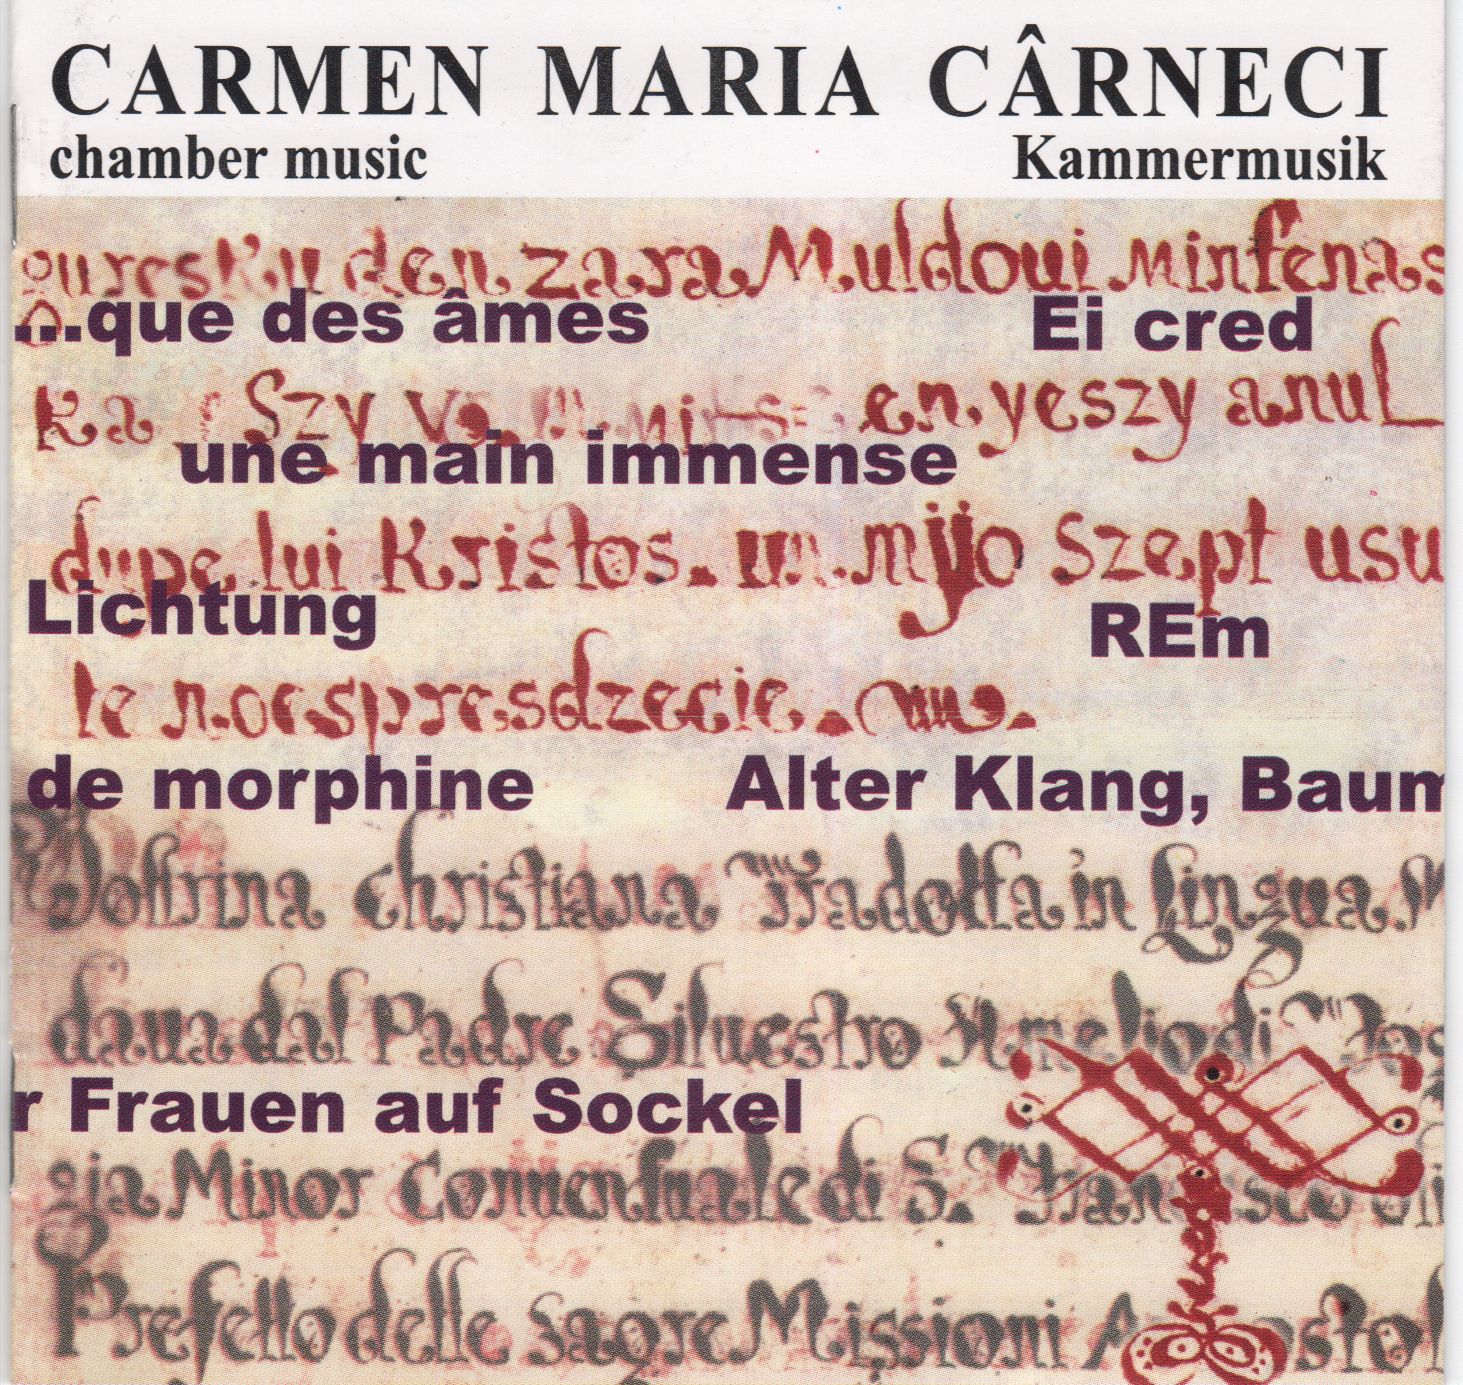 CARMEN MARIA CÂRNECI
chamber music Kammermusik
den zara Muldoui
...que des âmes Ei cred
Szy en yeszy anul
une main immense
dupe lui Kristos. mijo Szept usu
Lichtung REm
le noespresdzecie.
de morphine Alter Klang, Baum
Dottrina Christiana Tradotta in Lingua M
daua dal Padre Siluestro Amelio di
r Frauen auf Sockel
gia Minor Conuentuale di S. Francesco
Prefetto delle Sagre Missioni